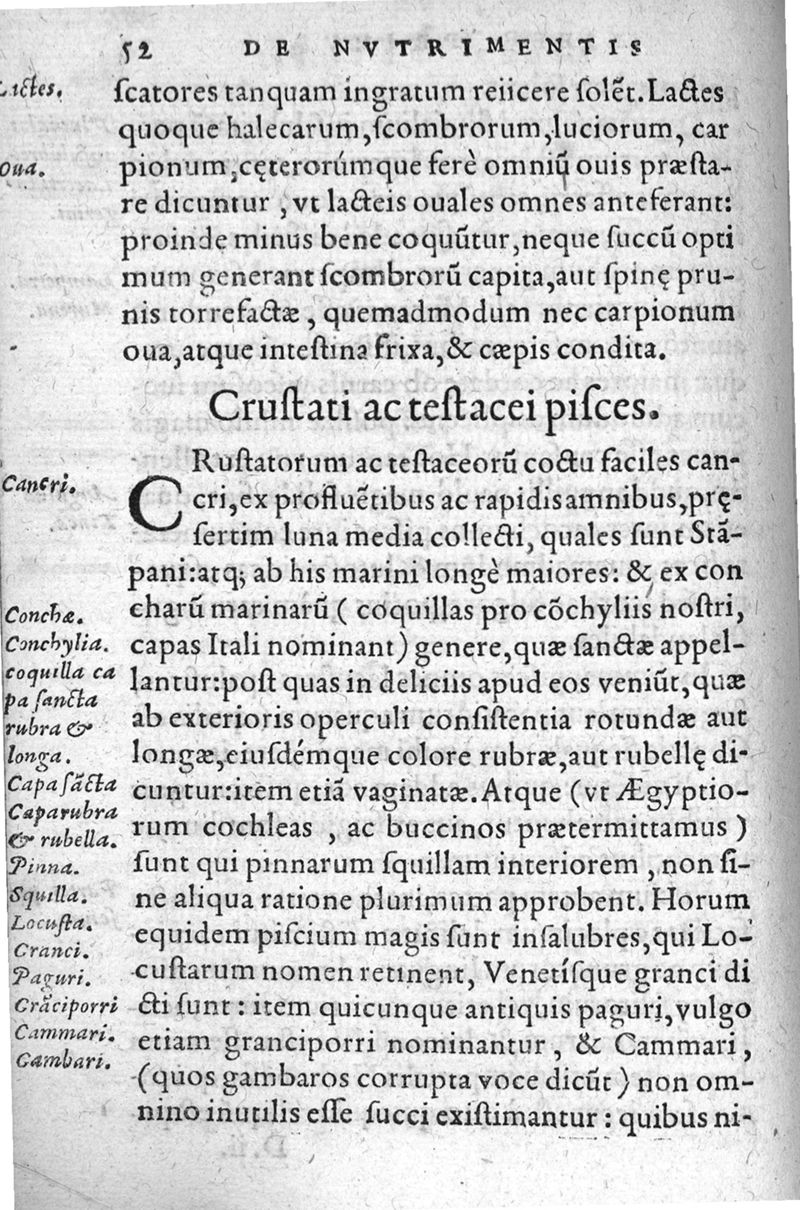 52 DE NVTRIMENTIS
Lactes.
ſcatores tanquam ingratum reiicere ſolēt. Lactes
quoque halecarum, ſcombrorum, luciorum, car
Oua.
pionum, cęterorúmque ferè omniū ouis præſta-
re dicuntur, vt lacteis ouales omnes anteferant:
proinde minus bene coquūtur, neque ſuccū opti
mum generant ſcombrorū capita, aut ſpinę pru-
nis torrefactæ, quemadmodum nec carpionum
oua, atque inteſtina frixa, & cæpis condita.
Cruſtati ac teſtacei piſces.
CRuſtatorum ac teſtaceorū coctu faciles can-
Cancri.
cri, ex profluētibus ac rapidis amnibus, prę-
ſertim luna media collecti, quales ſunt Stā-
pani: atq; ab his marini longè maiores: & ex con
Conchæ.
charū marinarū (coquillas pro cōchyliis noſtri,
Conchylia.
capas Itali nominant) genere, quæ ſanctæ appel-
coquilla ca
lantur: poſt quas in deliciis apud eos veniūt, quæ
pa ſancta
rubra &
ab exterioris operculi conſiſtentia rotundæ aut
longa.
longæ, eiuſdémque colore rubræ, aut rubellę di-
Capa ſācta
cuntur: item etiā vaginatæ. Atque (vt Ægyptio-
Capa rubra
rum cochleas, ac buccinos prætermittamus)
& rubella.
Pinna.
ſunt qui pinnarum ſquillam interiorem, non ſi-
Squilla.
ne aliqua ratione plurimum approbent. Horum
Locuſta.
equidem piſcium magis ſunt inſalubres, qui Lo-
Cranci.
Paguri.
cuſtarum nomen retinent, Venetíſque granci di
Grāciporri
cti ſunt: item quicunque antiquis paguri, vulgo
Cammari.
etiam granciporri nominantur, & Cammari,
Gambari.
(quos gambaros corrupta voce dicūt) non om-
nino inutilis eſſe ſucci exiſtimantur: quibus ni-